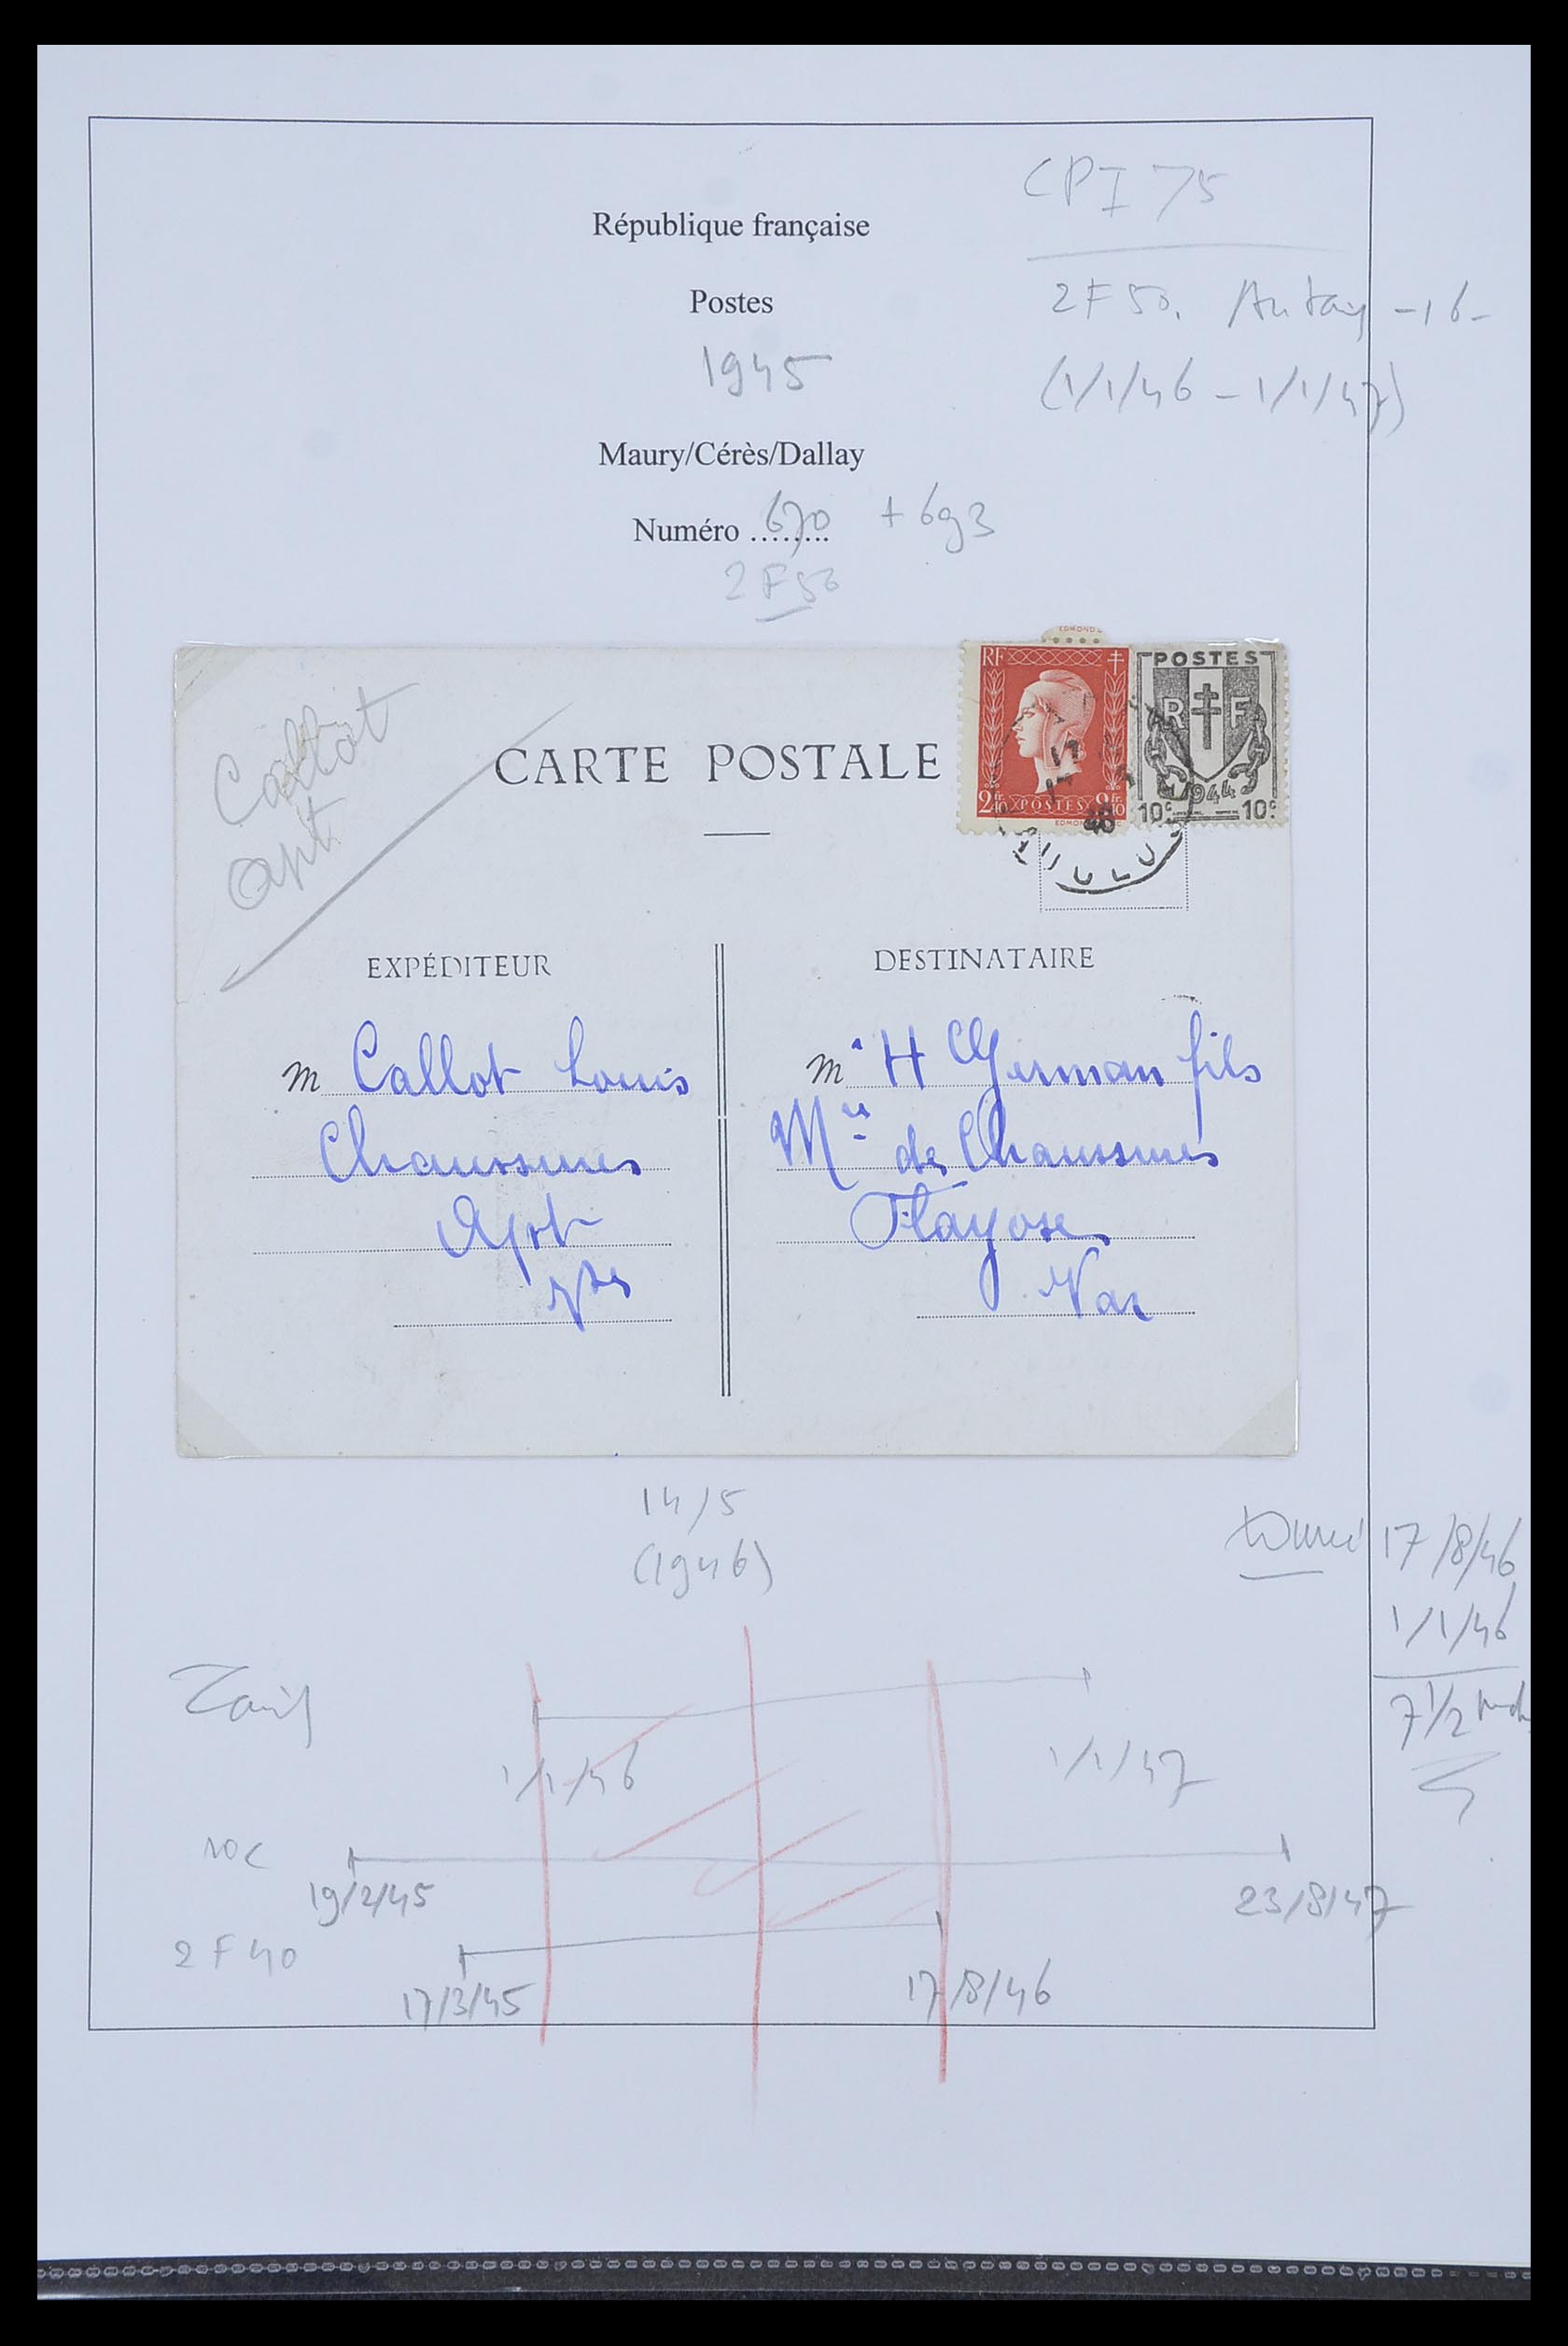 CPI 75
République française
2F50.
-16-
Postes
1945
(1/1/46 - 1/1/47)
Maury/Cérès/Dallay
Numéro ........ 670 + 693
2F50
Callot
Apt
EDMOND
RF
2fr.40 POSTES 2fr.40
EDMOND
POSTES
R F
1944
10c 10c
CARTE POSTALE
46
EXPÉDITEUR
M Callot Louis
Chaussures
Apt
Vse
DESTINATAIRE
M. H German fils
Mre de Chaussures
Flayosc
Var
14/5
(1946)
17/8/46
1/1/46
7 1/2
Tarif
1/1/46
1/1/47
10c
19/2/45
23/8/47
2F40
17/3/45
17/8/46